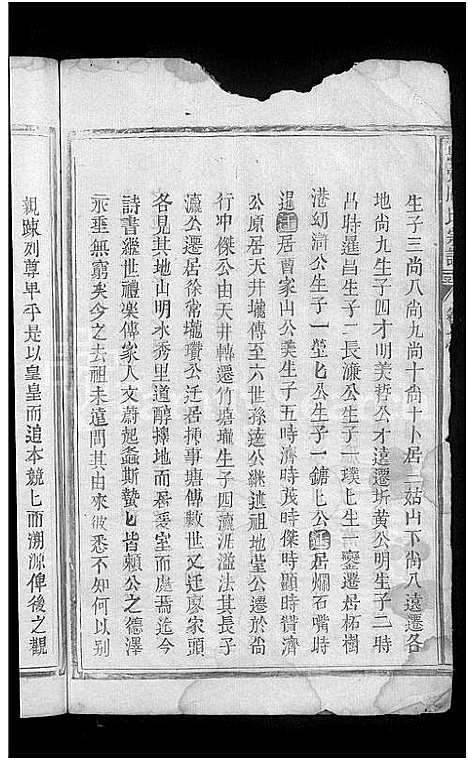 生子三尚八尚九尚十尙十卜居二姑山下尚八遠遷各
地尚九生子四才明美哲公才遠遷圻黄公明生子二時
昌時暹昌生子二長濂公生子一璞匕生一鑾遷居柘樹
港幼滸公生子一塋匕公生子一鏣匕公遷居爛石嘴時
暹遷居曹家山公美生子五時濟時茂時傑時顯時贊濟
公原居天井壠傳至六世孫遠公繼述祖地堂公遷於尙
行冲傑公由天井轉遷竹塘壠生子四瀛涯溢法其長子
瀛公遷居徐常壠瓚公迁居揷事塘傳數世又迁廖家頭
各見其地山明水秀里道醇撲地而居爰室而處焉迄今
詩書繼世禮樂傳家人文蔚起螽斯蟄匕皆賴公之德澤
永垂無窮矣今之去祖未遠問其由來彼悉不知何以别
親踈列尊卑乎是以皇皇而追本競匕而溯源俾後之觀